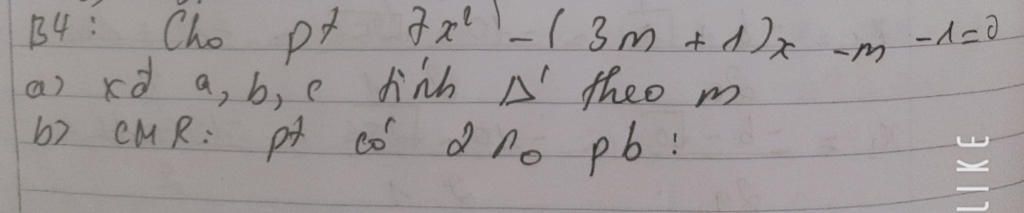 B4: Cho pt 7x² - (3m + 1)x - m - 1 = 0
a) xđ a, b, c tính Δ' theo m
b) CMR: pt có 2 no pb!
LIKE